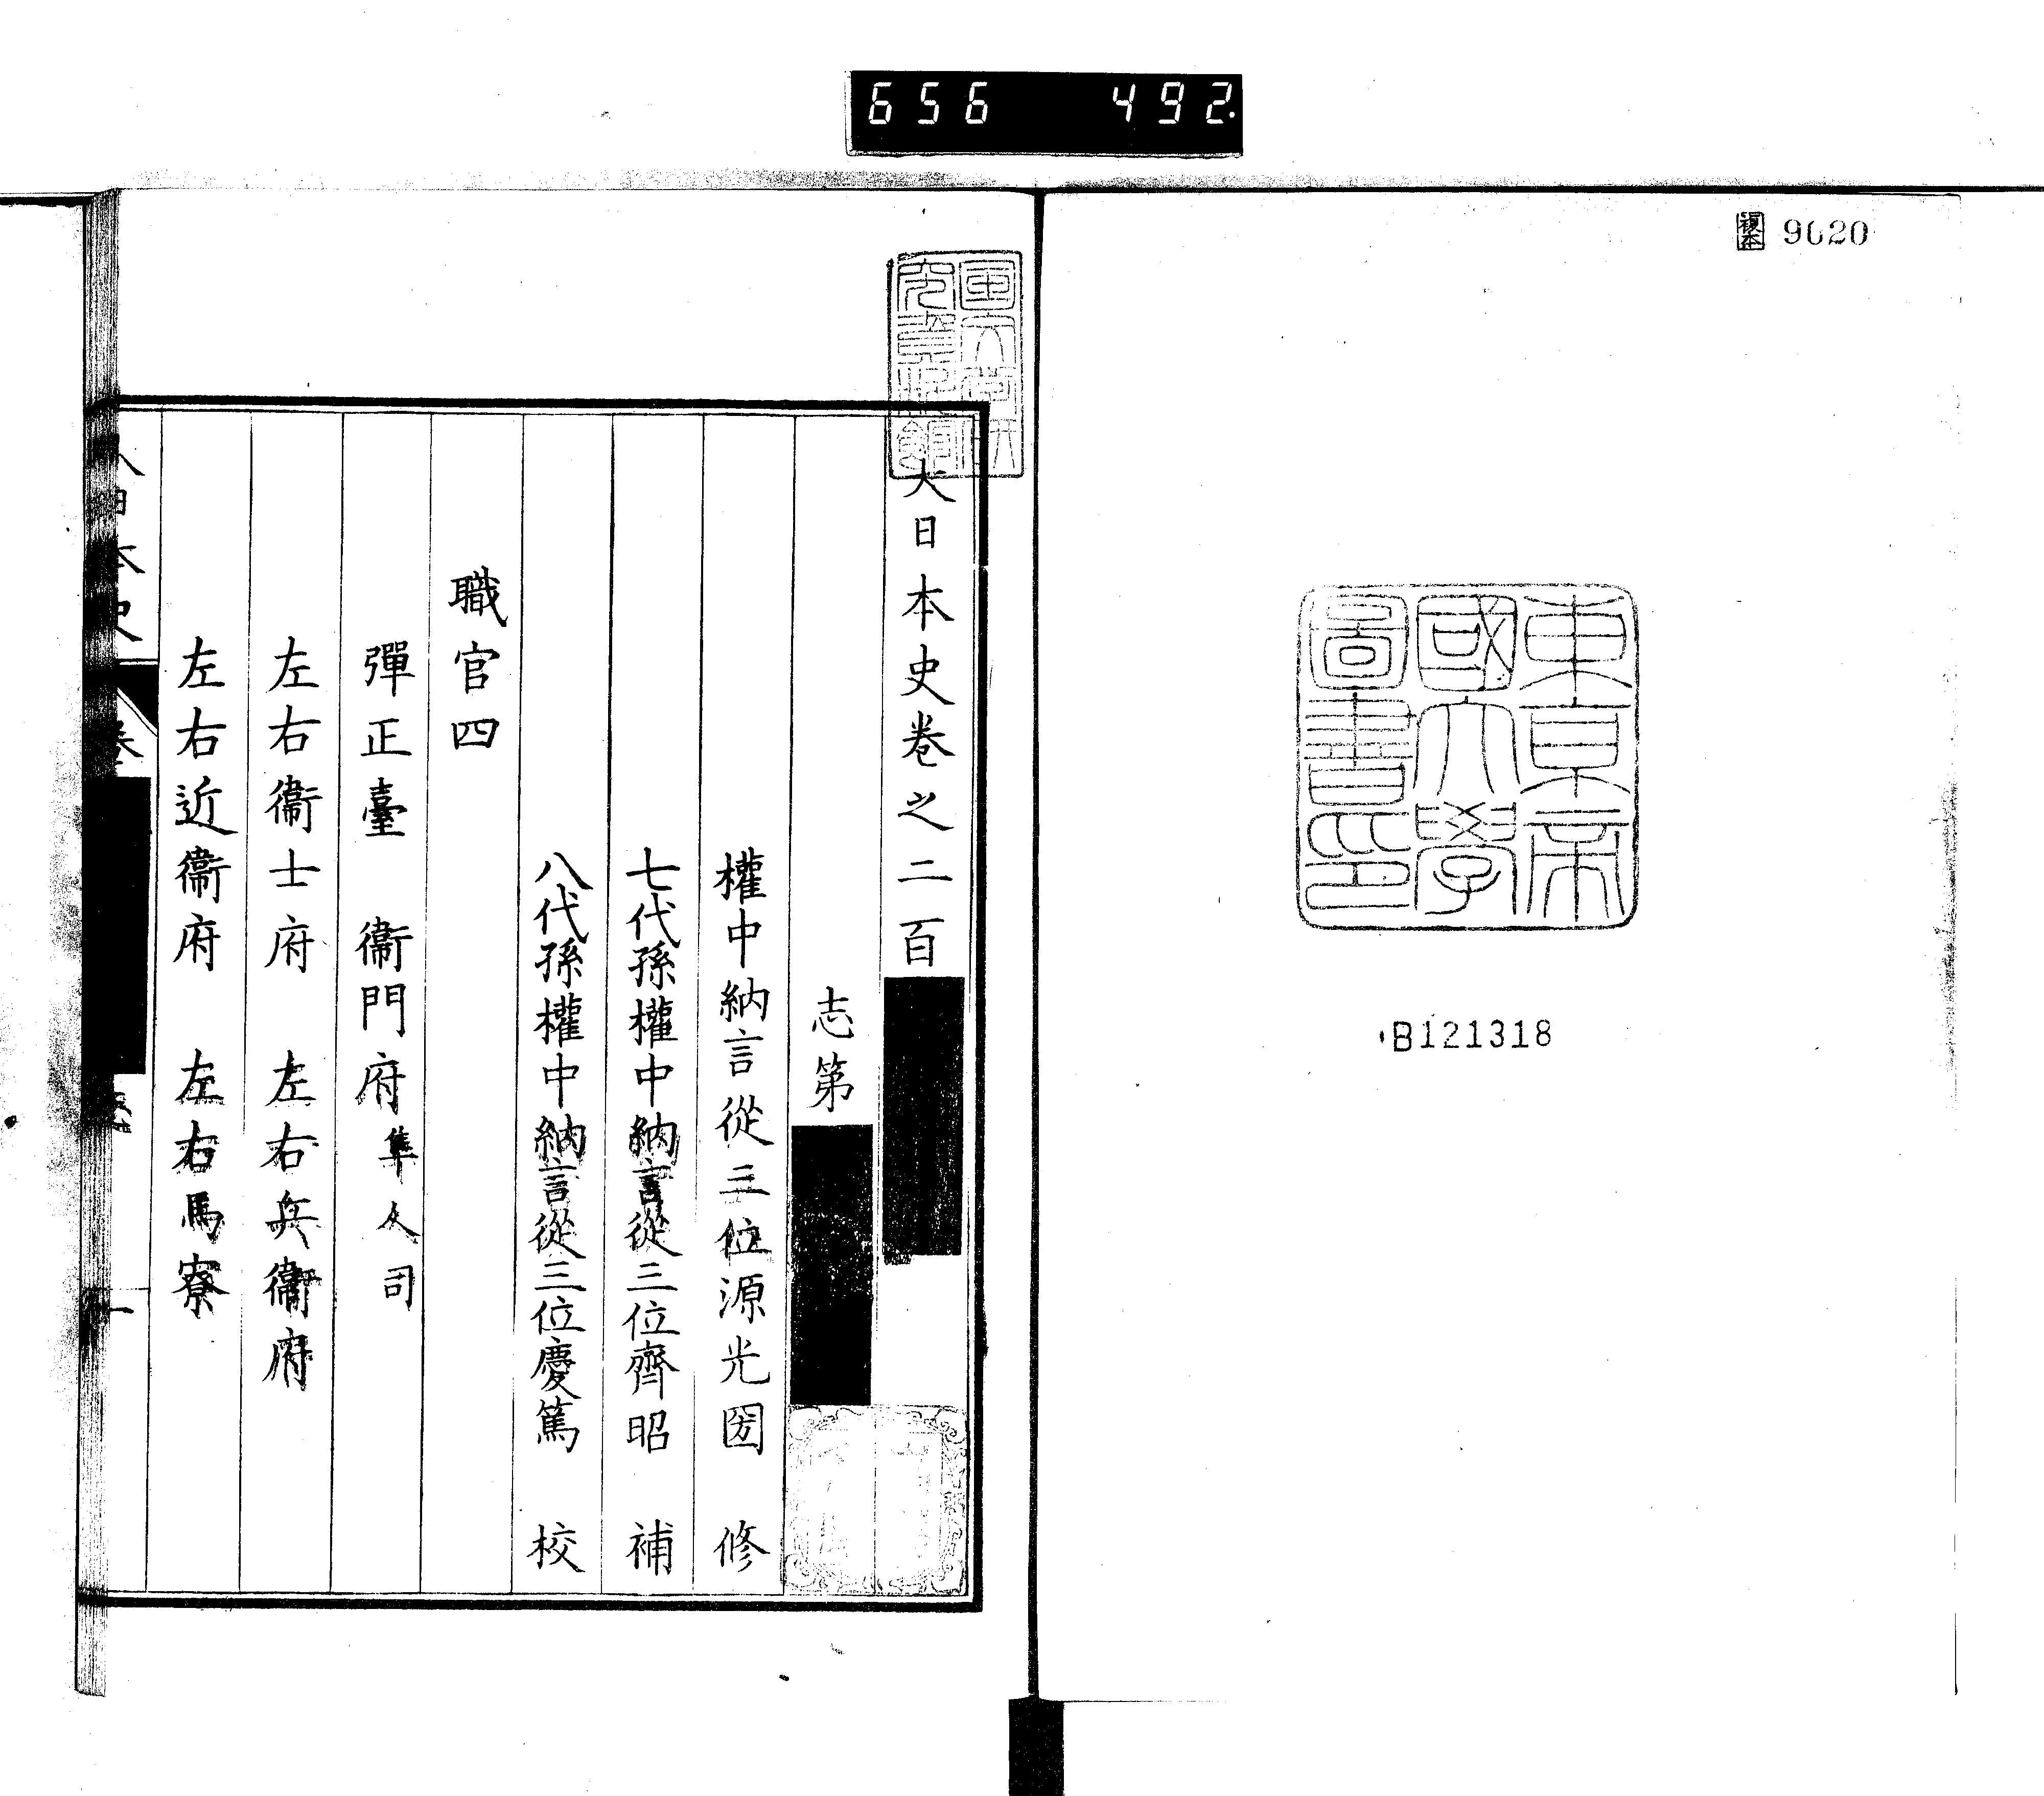 656 492.
複本 9020
東京帝
國大學
圖書印
B121318
大日本史卷之二百
志第
權中納言從三位源光圀 修
七代孫權中納言從三位齊昭 補
八代孫權中納言從三位慶篤 校
職官四
彈正臺 衞門府 隼人司
左右衞士府 左右兵衞府
左右近衞府 左右馬寮
日本史 卷
一